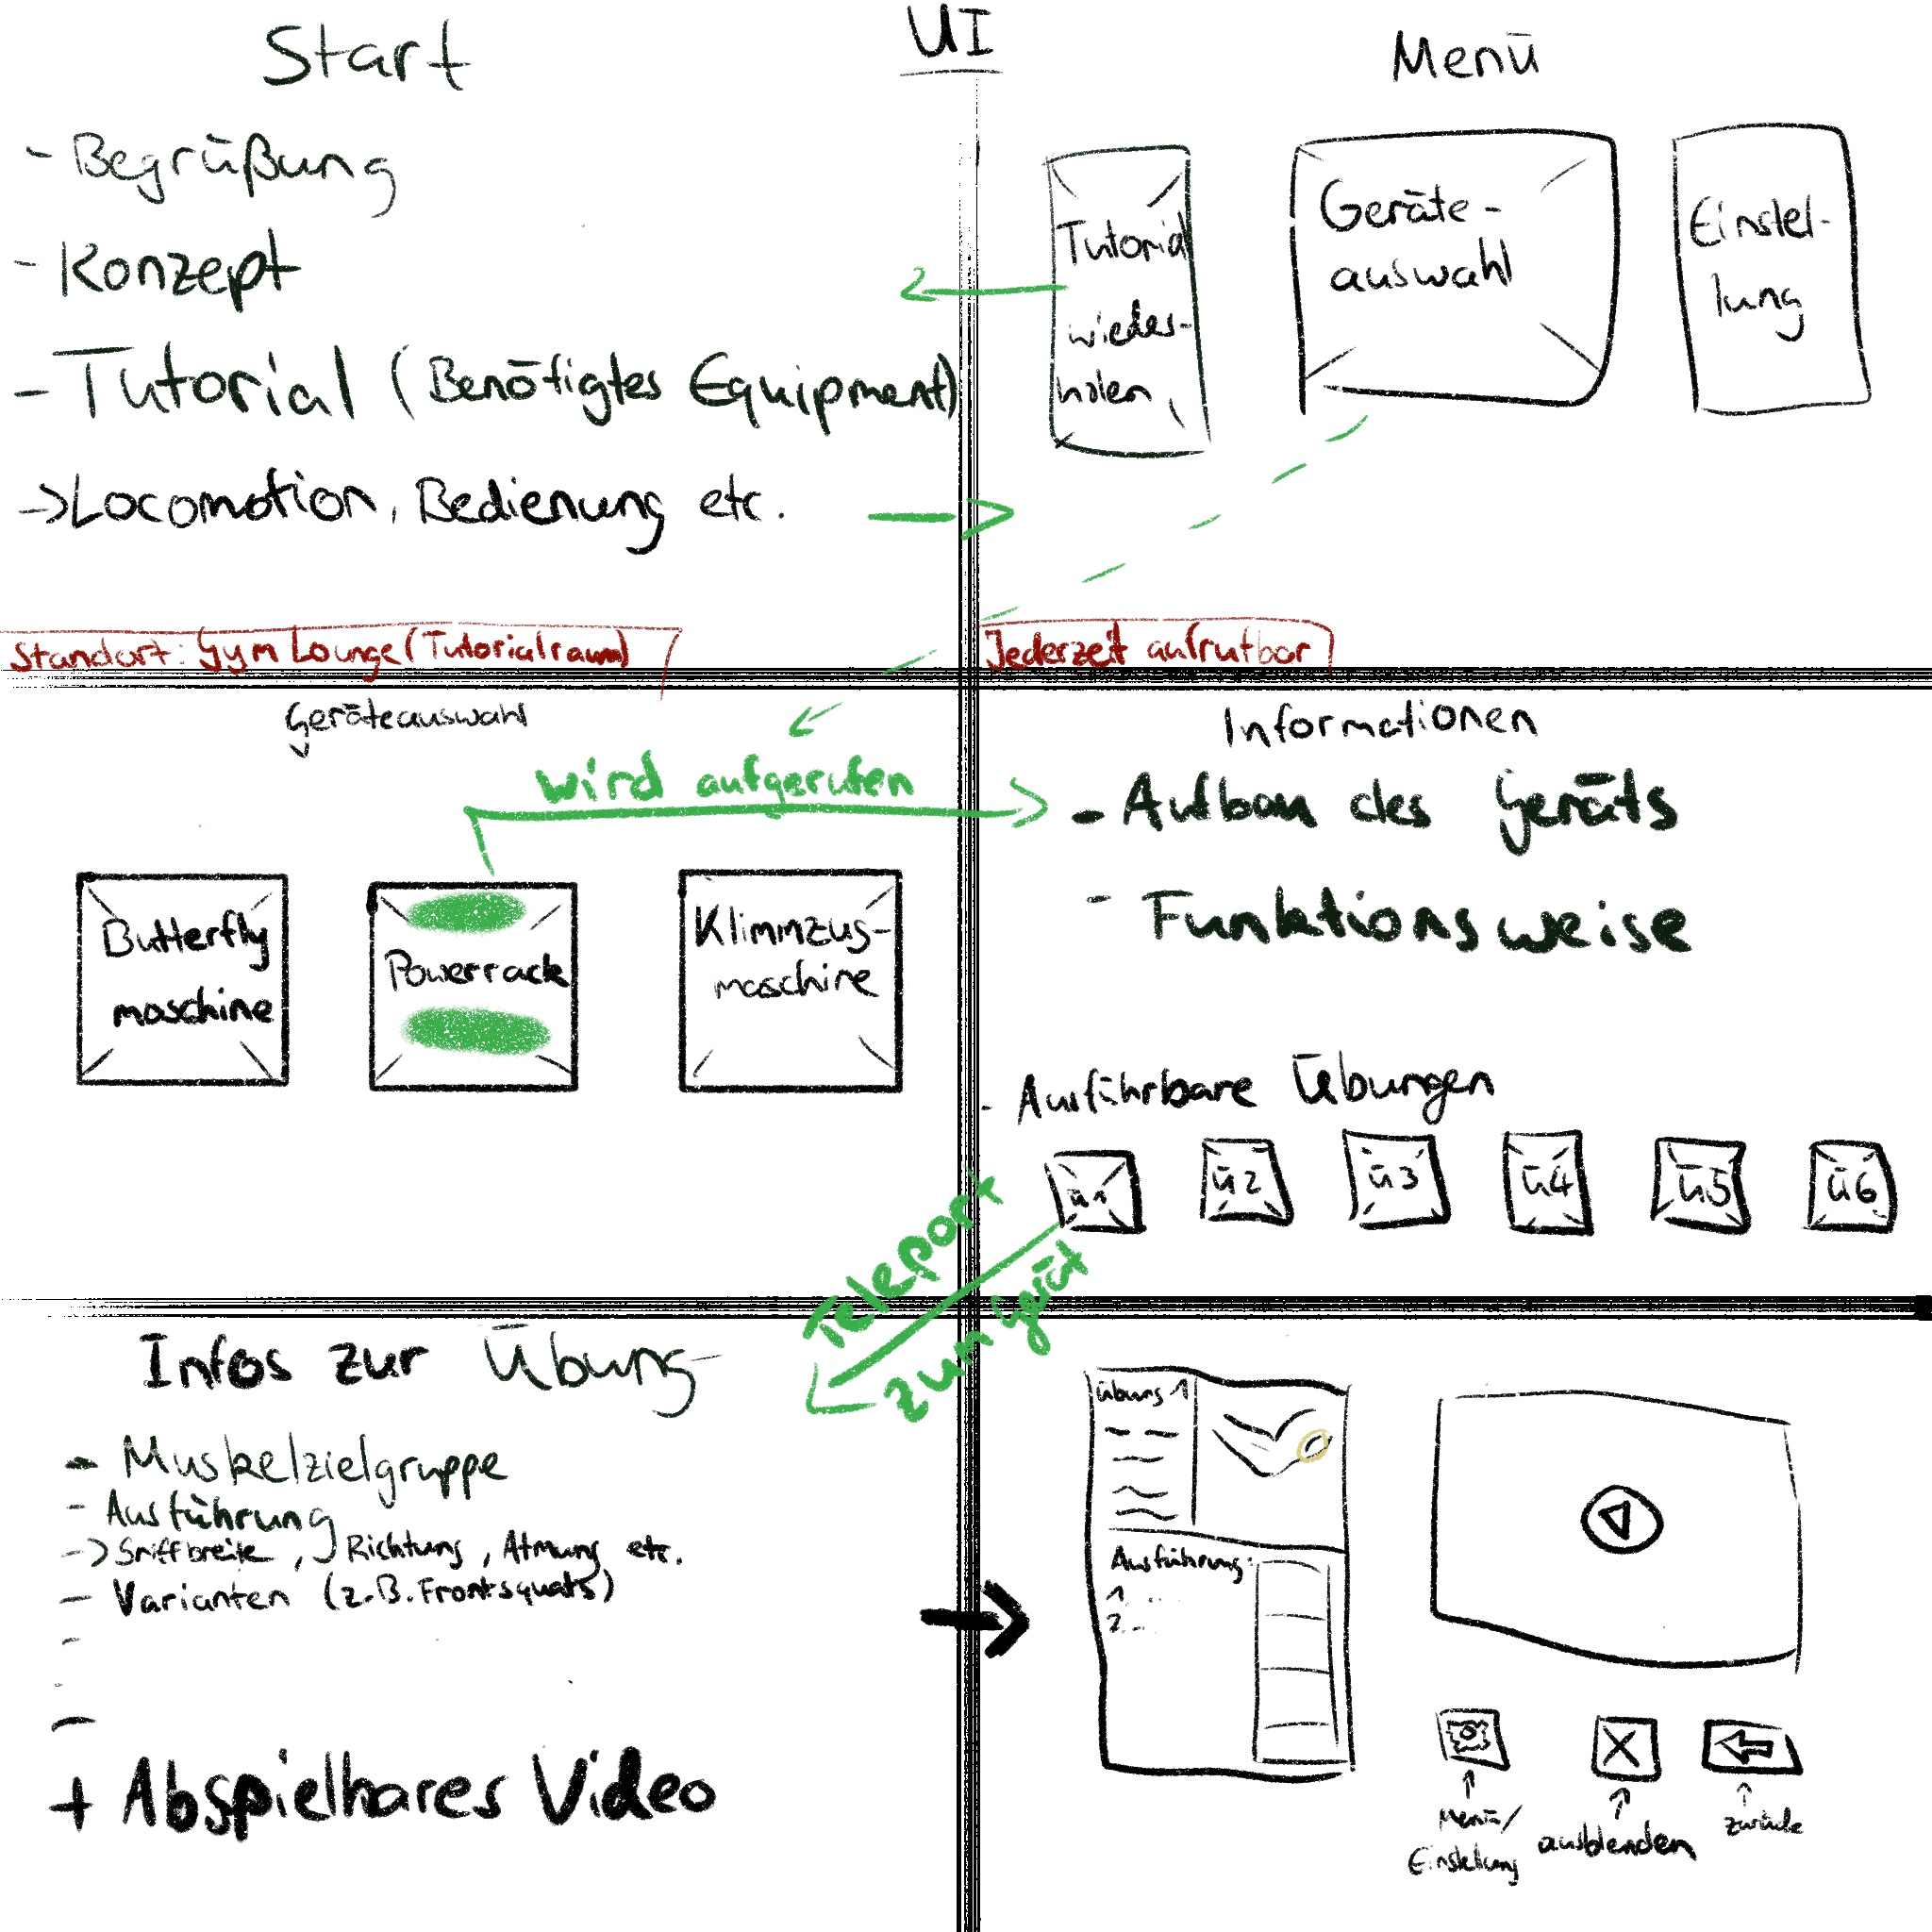 UI
Start
- Begrüßung
- Konzept
- Tutorial (Benötigtes Equipment)
-> Locomotion, Bedienung etc.
Standort: Gym Lounge (Tutorialraum)
Menü
Tutorial
wieder-
holen
Geräte-
auswahl
Einstel-
lung
Jederzeit aufrufbar
Geräteauswahl
wird aufgerufen
Butterfly
maschine
Powerrack
Klimmzug-
maschine
Informationen
- Aufbau des Geräts
- Funktionsweise
- Ausführbare Übungen
ü1
ü2
ü3
ü4
ü5
ü6
Teleport
zum Gerät
Infos zur Übung
- Muskelzielgruppe
- Ausführung
-> Griffbreite, Richtung, Atmung etc.
- Varianten (z.B. Frontsquats)
-
-
-
+ Abspielbares Video
Übung 1
Ausführung:
1. ...
2. ...
Menü/
Einstellung
ausblenden
zurück